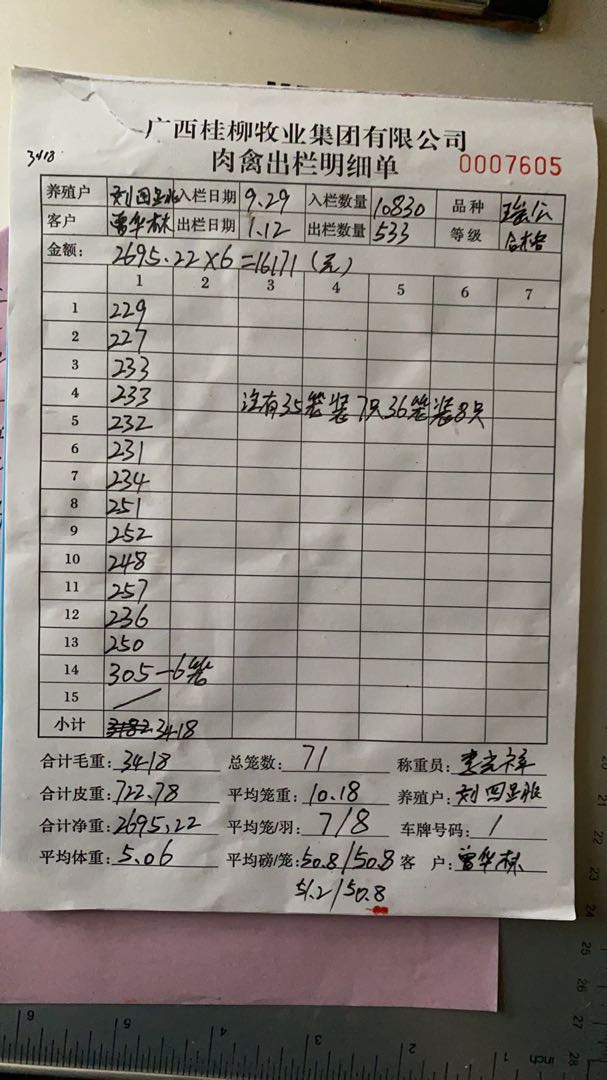 广西桂柳牧业集团有限公司
3418
肉禽出栏明细单 0007605
养殖户 刘四 入栏日期 9.29 入栏数量 10830 品种 瑞公
客户 曾华林 出栏日期 1.12 出栏数量 533 等级 合格
金额: 2695.22×6=16171(元)
1 2 3 4 5 6 7
1 229
2 227
3 233
4 233 没有35笼装7只36笼装8只
5 232
6 231
7 234
8 251
9 252
10 248
11 257
12 236
13 250
14 305-6笼
15
小计 3182 3418
合计毛重: 3418 总笼数: 71 称重员:
合计皮重: 722.78 平均笼重: 10.18 养殖户: 刘四
合计净重: 2695.22 平均笼/羽: 7/8 车牌号码: /
平均体重: 5.06 平均磅/笼: 50.8/50.8 客 户: 曾华林
51.2/50.8
6 5 4 3 2 1 inch
22 23 24 25 26 27 28